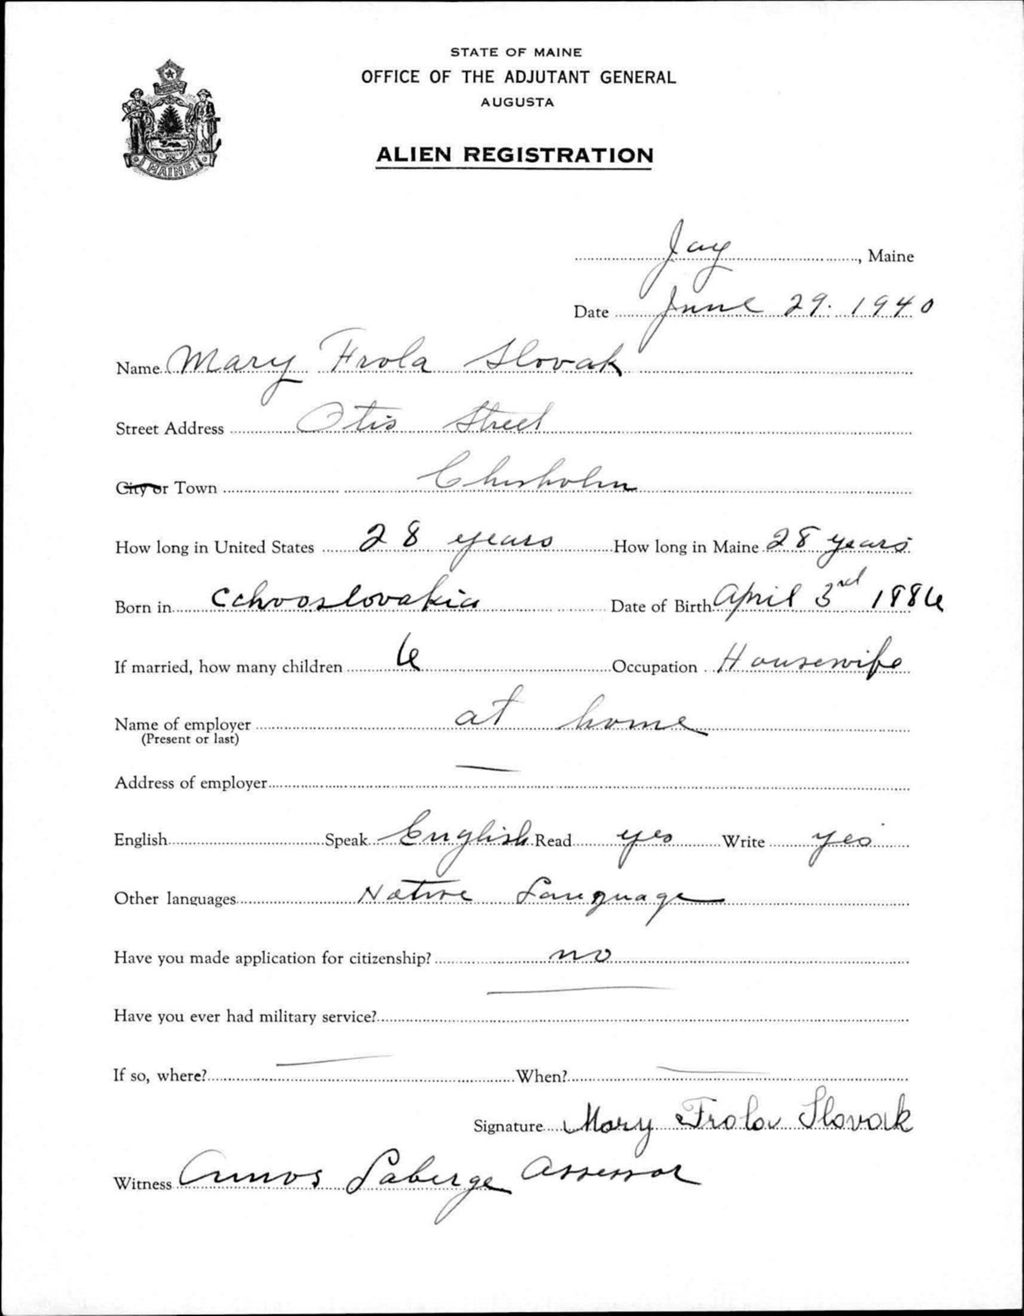 STATE OF MAINE
OFFICE OF THE ADJUTANT GENERAL
AUGUSTA
ALIEN REGISTRATION
MAINE
Jay, Maine
Date June 29. 1940
Name Mary Frola Slovak
Street Address Otis Street
City or Town Chisholm
How long in United States 28 years How long in Maine 28 years
Born in Cchooslovakia Date of Birth April 3rd 1886
If married, how many children 6 Occupation Housewife
Name of employer at home
(Present or last)
Address of employer —
English Speak English Read yes Write yes
Other languages Native Language
Have you made application for citizenship? no
Have you ever had military service? —
If so, where? — When? —
Signature Mary Frola Slovak
Witness Amos Laberge Assessor